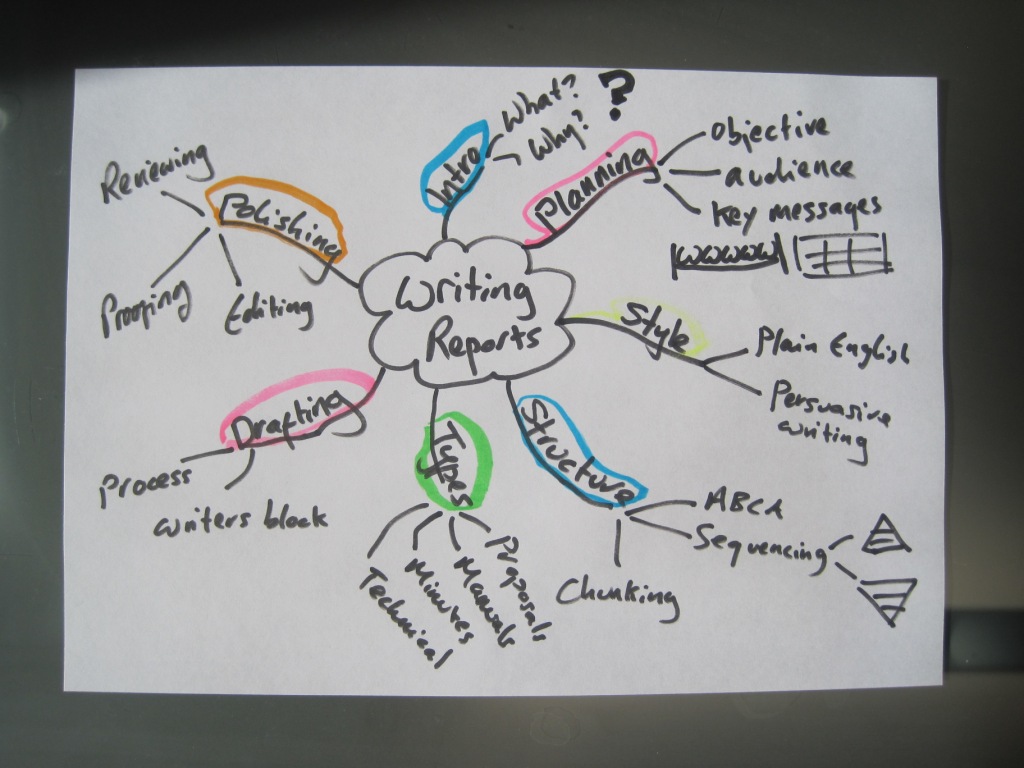 Writing
Reports
Intro
What?
?
Why?
Planning
Objective
audience
key messages
WWWWW
Style
Plain English
Persuasive
writing
Structure
ABCA
Sequencing
Chunking
Types
Proposals
Manuals
Minutes
Technical
Drafting
Process
writers block
Polishing
Reviewing
Proofing
Editing